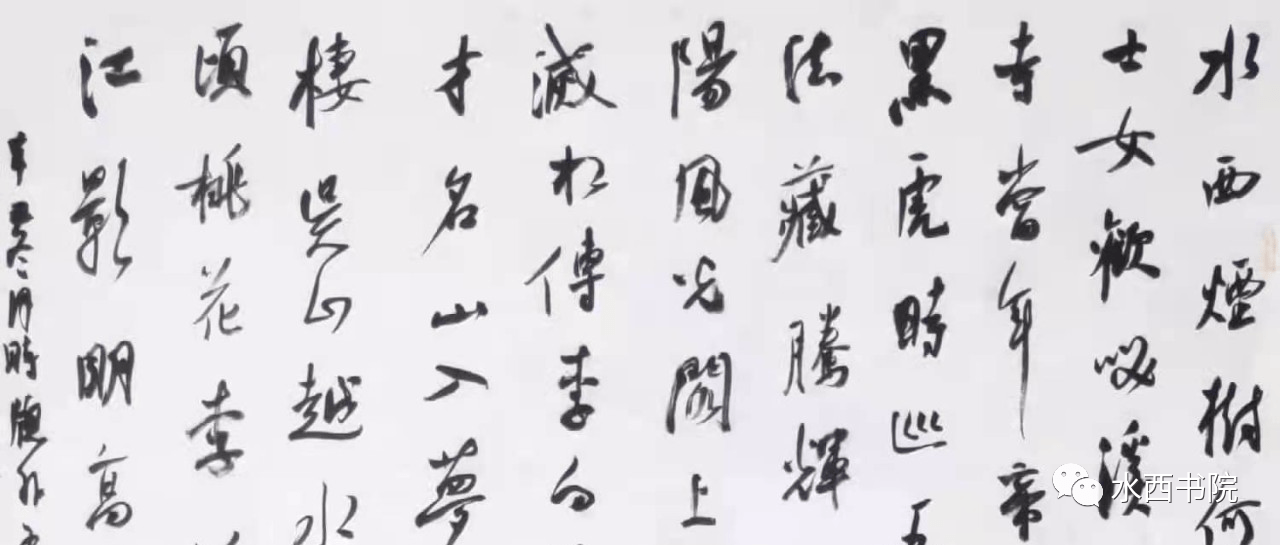 水西煙樹何
士女歡咲溪
寺當年帝
黑虎時巡五
法藏騰輝
陽鳳光閣上
滅相傳李白
才名山入夢
棲吳山越水
頃桃花李
江影明高
辛丑冬月時
水西书院